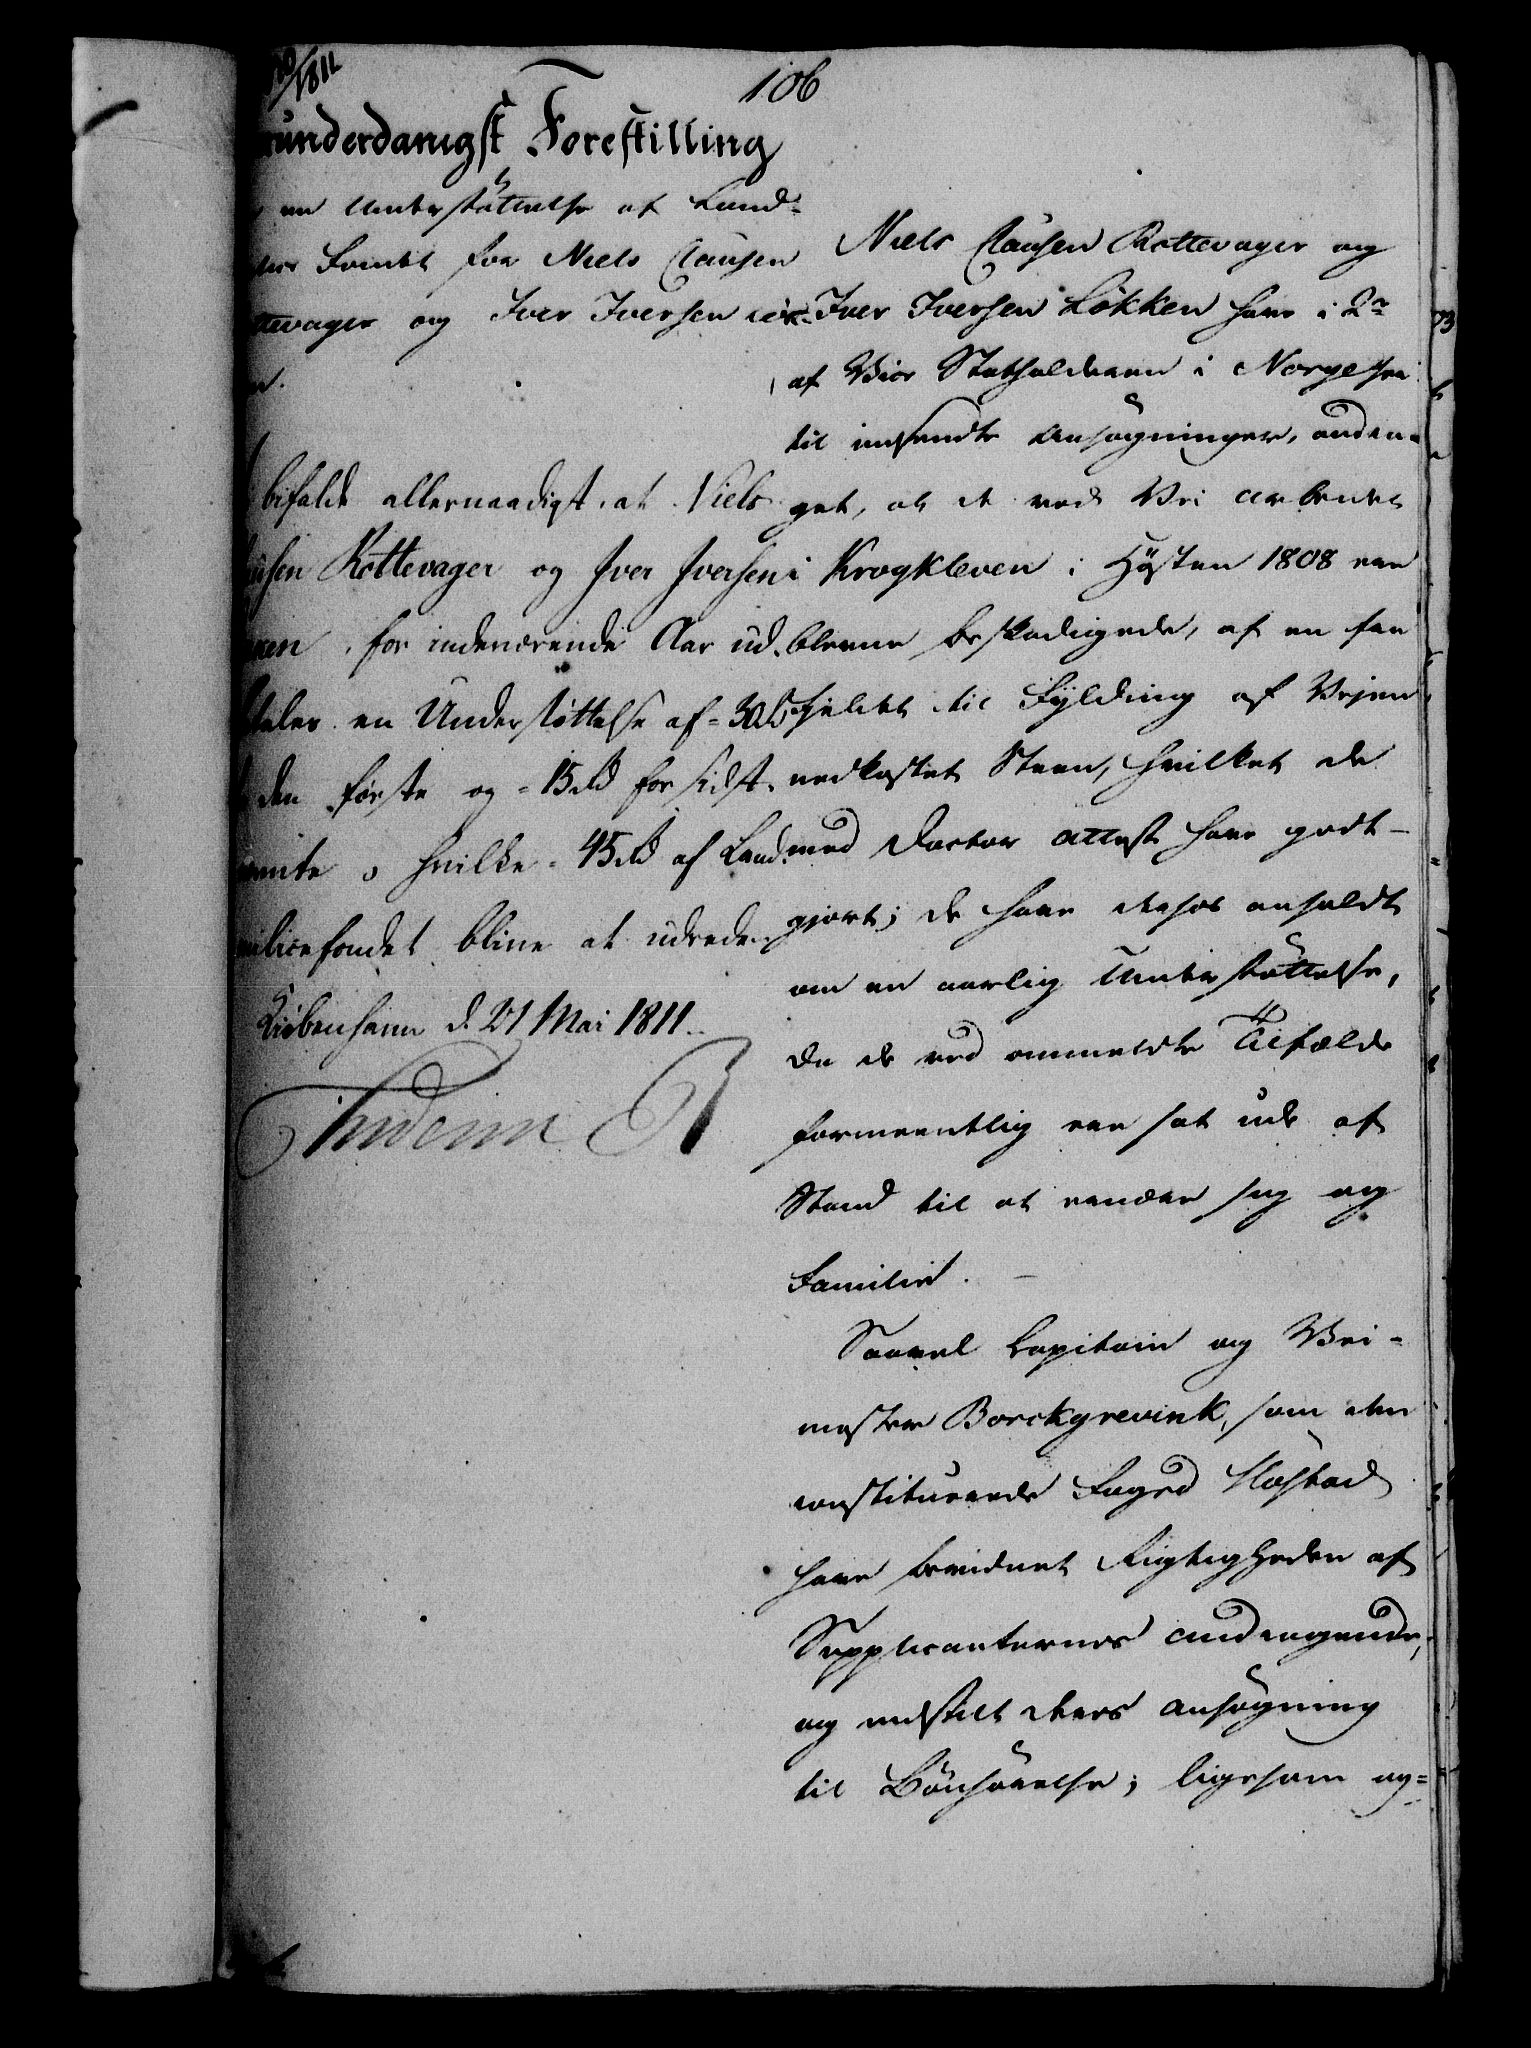 106
/1811
runderdanigst Forestilling
en Understøttelse af Land-
Fondet for Niels Clausen
ttevager og Iver Iversen Løk-
en.
bifalde allernaadigst, at Niels
ausen Rottevager og Iver Iversen
ken, for indeværende Aar ud-
tales en Understøttelse af 30 rd
den første og 15 rd for sidst-
nævnte, hvilke 45 rd af Land-
milicefondet blive at udrede.
Kiøbenhavn d. 21 Mai 1811.
Frideric R
Niels Clausen Rottevager og
Iver Iversen Løkken have i 2de
af Vice Statholderen i Norge her-
til indsendte Ansøgninger, andra-
get, at de ved Vei arbeidet
i Krogkleven i Høsten 1808 ere
blevne beskadigede, af en fra
Fjeldet til Fylding af Veien
nedkastet Steen, hvilket de
med Doctor Attest have godt-
gjort; de have derhos anholdt
om en aarlig Understøttelse,
da de ved ommeldte Tilfælde
formeentlig ere sat ud af
Stand til at ernære sig og
Familie. –
Saavel Capitain og Vei-
mester Borckgrevink, som den
constituerede Foged Høstad
have bevidnet Rigtigheden af
Supplicanternes Andragende,
og indstilt deres Ansøgning
til Bønhørelse; ligesom og-